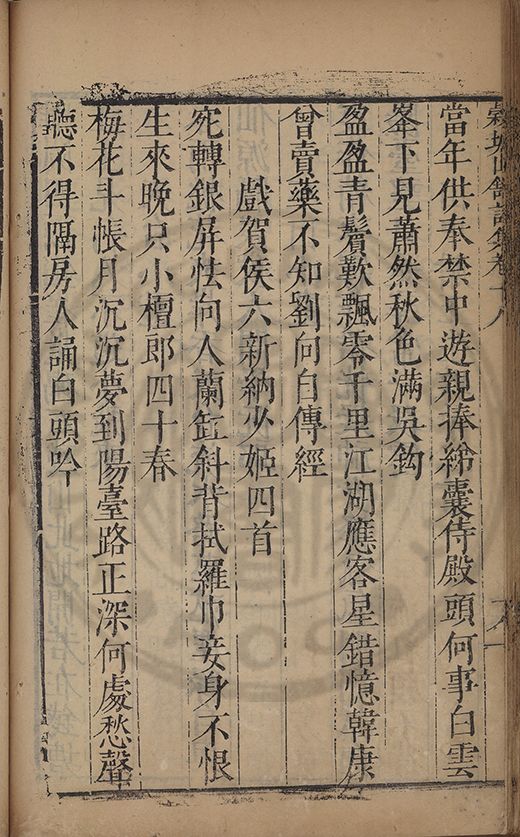 穀城山館詩集卷十八
當年供奉禁中遊親捧綈囊侍殿頭何事白雲
峯下見蕭然秋色滿吳鈎
盈盈青鬢歎飄零千里江湖應客星錯憶韓康
曾賣藥不知劉向自傳經
戲賀侯六新納少姬四首
宛轉銀屏怯向人蘭缸斜背拭羅巾妾身不恨
生來晚只小檀郎四十春
梅花斗帳月沉沉夢到陽臺路正深何處愁聲
聽不得隔房人誦白頭吟